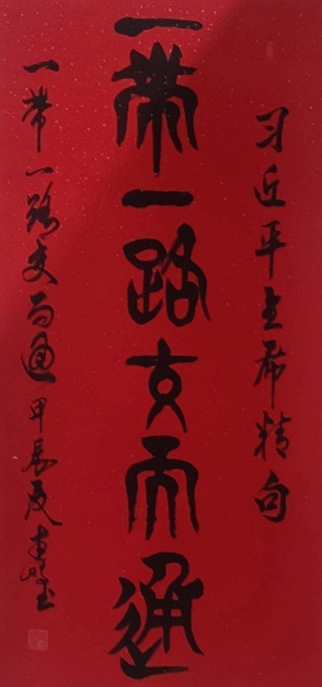 习近平主席精句
一帶一路交而通
一带一路交而通 甲辰夏